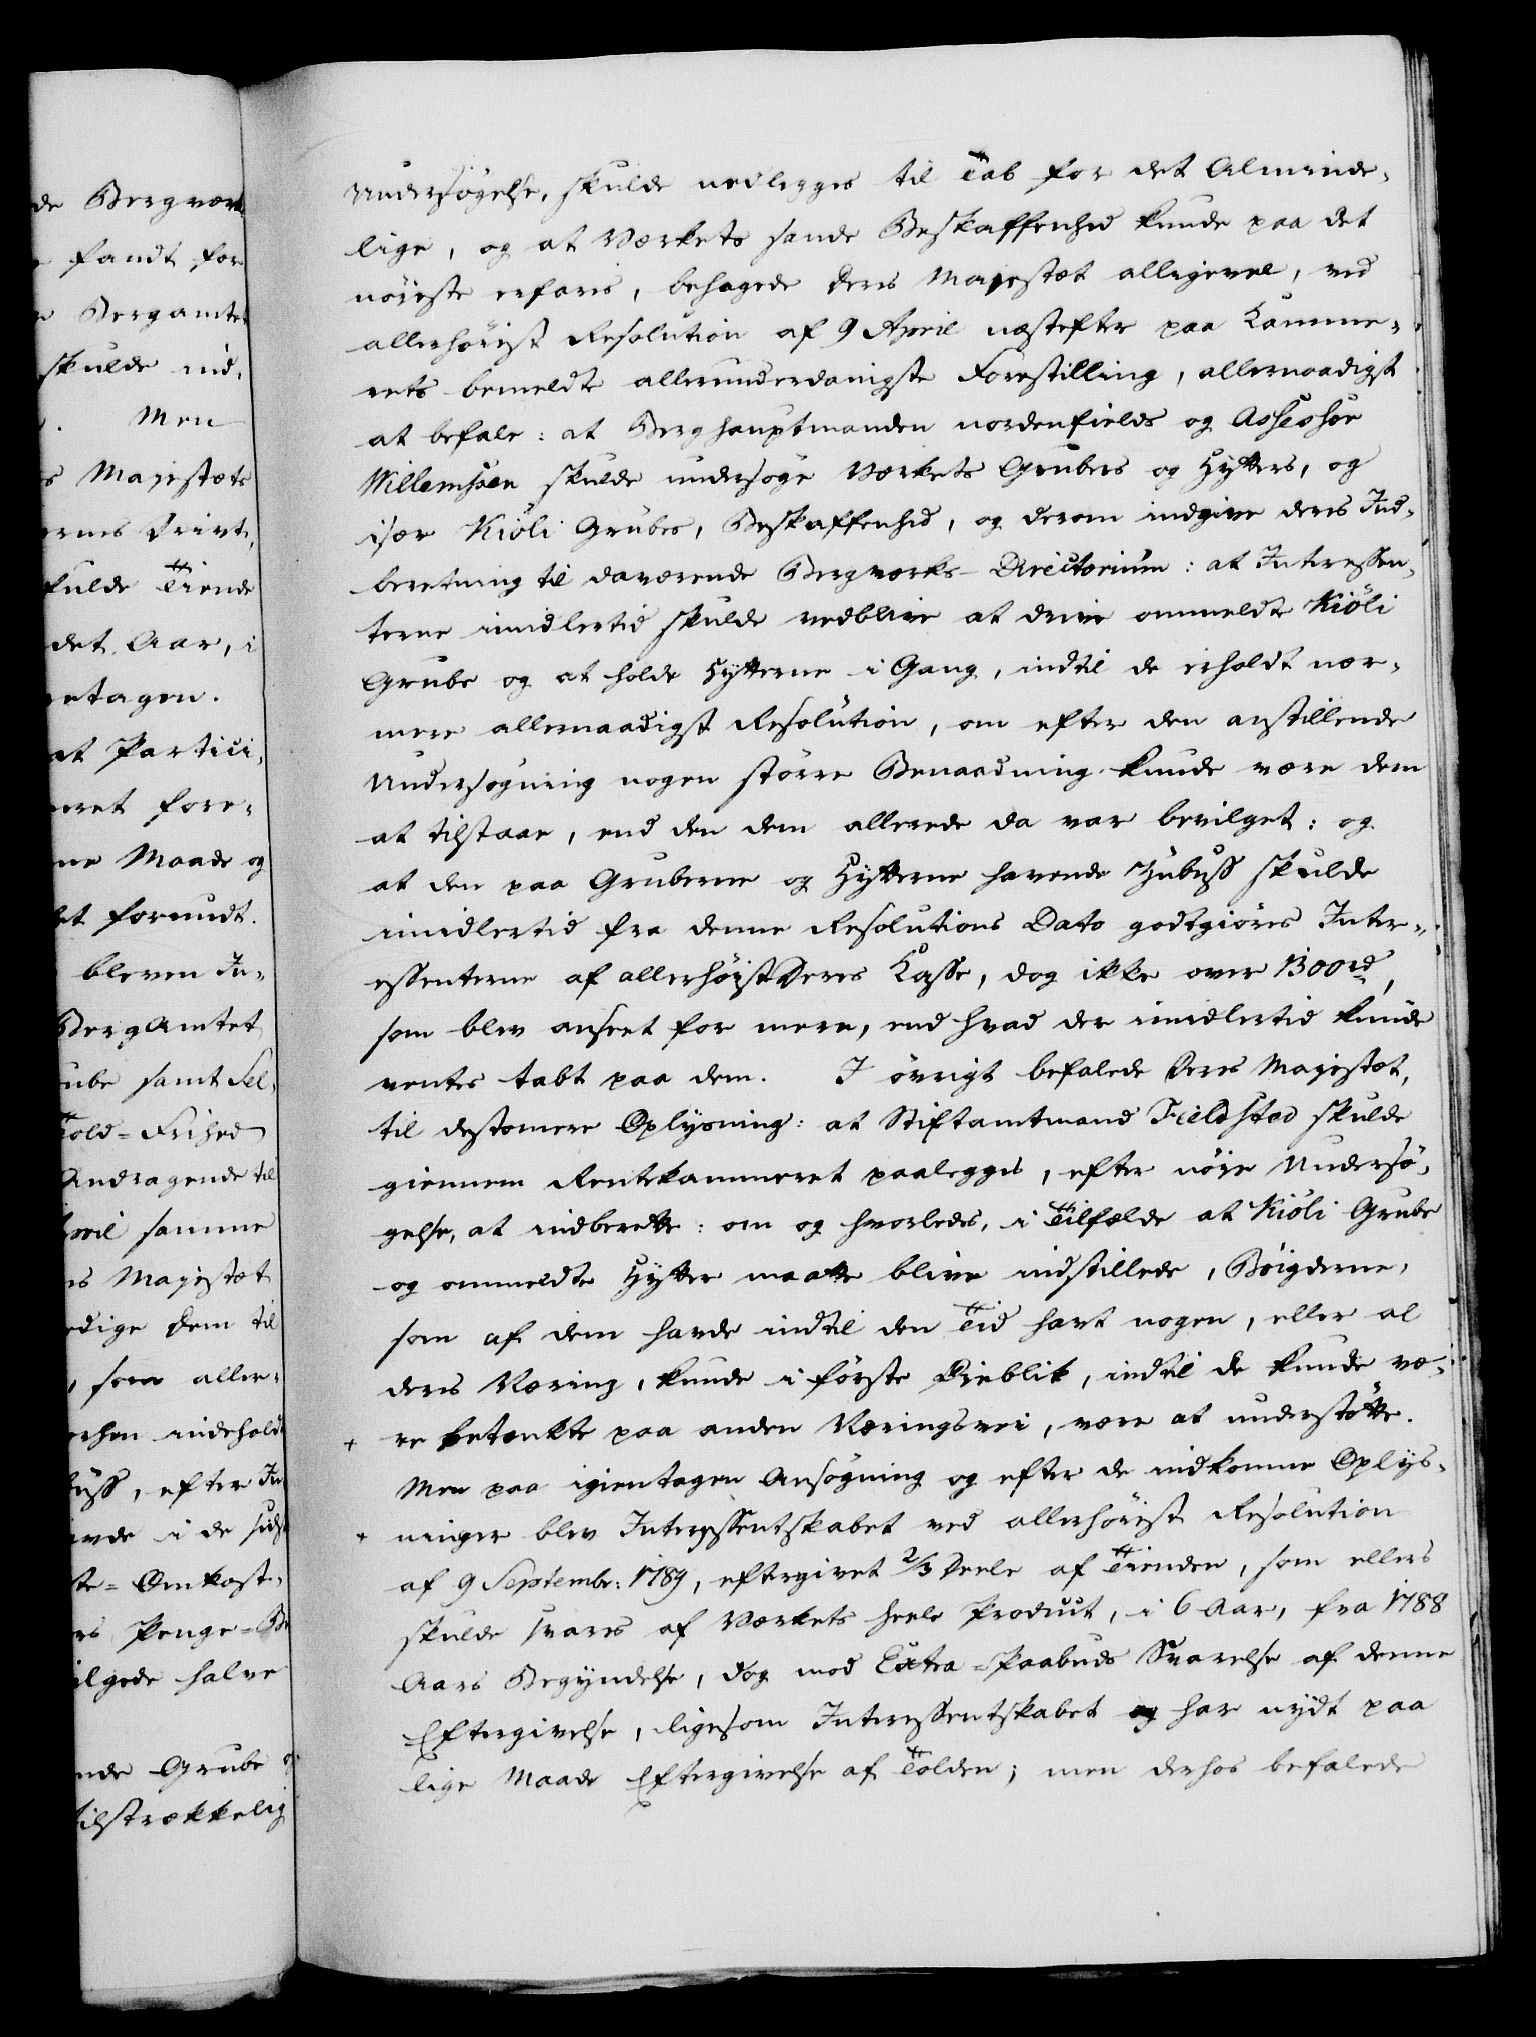 de Bergværk
fandt for
Bergamtet
skulde ned,
Men
s Majestæts
ernes Drivt,
fulde Tiende
det Aar, i
retagen.
at Partici,
eret fore,
ne Maade og
et forundt.
bleven In,
BergAmtet
ube samt Sel,
Told=Frihed
Andragende til
April samme
es Majestæt
edige dem til
, som aller,
erhen indeholdt
buss, efter In
avde i de sidst
te=Omkost,
rs Penge=Be
ilgede halve
nde Grube
tilstrækkelig
Undersøgelse, skulde nedlegges til Tab for det Alminde,
lige, og at Værkets sande Beskaffenhed kunde paa det
nøieste erfares, behagede Deres Majestæt alligevel, ved
allerhøiest Resolution af 9 April næstefter paa Kamme,
rets bemeldte allerunderdanigste Forestilling, allernaadigst
at befale: at Berghauptmanden nordenfields og Assessor
Willemssen skulde undersøge Værkets Grubers og Hytters, og
især Kiöli Grubes, Beskaffenhed, og derom indgive deres Ind,
beretning til daværende Bergværks-Directorium: at Interessen,
terne imidlertid skulde vedblive at drive ommeldte Kiöli
Grube og at holde Hytterne i Gang, indtil de erholdt nær,
mere allernaadigst Resolution, om efter den anstillende
Undersøgning nogen større Benaadning kunde være dem
at tilstaae, end den dem allerede da var bevilget: og
at den paa Gruberne og Hytterne havende Zubuss skulde
imidlertid fra denne Resolutions Dato godtgiøres Inter,
essenterne af allerhøistDeres Kasse, dog ikke over 1300rd,
som blev anseet for mere, end hvad der imidlertid kunde
ventes tabt paa dem. I øvrigt befalede Deres Majestæt,
til destomere Oplysning: at Stiftamtmand Fieldsted skulde
giennem Rentekammeret paalegges, efter nøie Undersø,
gelse, at indberette: om og hvorledes, i Tilfælde at Kiöli Grube
og ommeldte Hytter maatte blive indstillede, Bøigderne,
som af dem havde indtil den Tid havt nogen, eller al
deres Næring, kunde i første Øieblik, indtil de kunde væ,
+ re betænkte paa anden Næringsvei, være at understøtte.
Men paa igientagen Ansøgning og efter de indkomne Oplys,
+ ninger blev Interessentskabet ved allerhøiest Resolution
af 9 Septembr: 1789, eftergivet 2/3 Deele af Tienden, som ellers
skulde svares af Værkets heele Product, i 6 Aar, fra 1788
Aars Begyndelse, dog mod Extra=Paabuds Svarelse af denne
Eftergivelse, ligesom Interessentskabet og har nydt paa
lige Maade Eftergivelse af Tolden; men derhos befalede